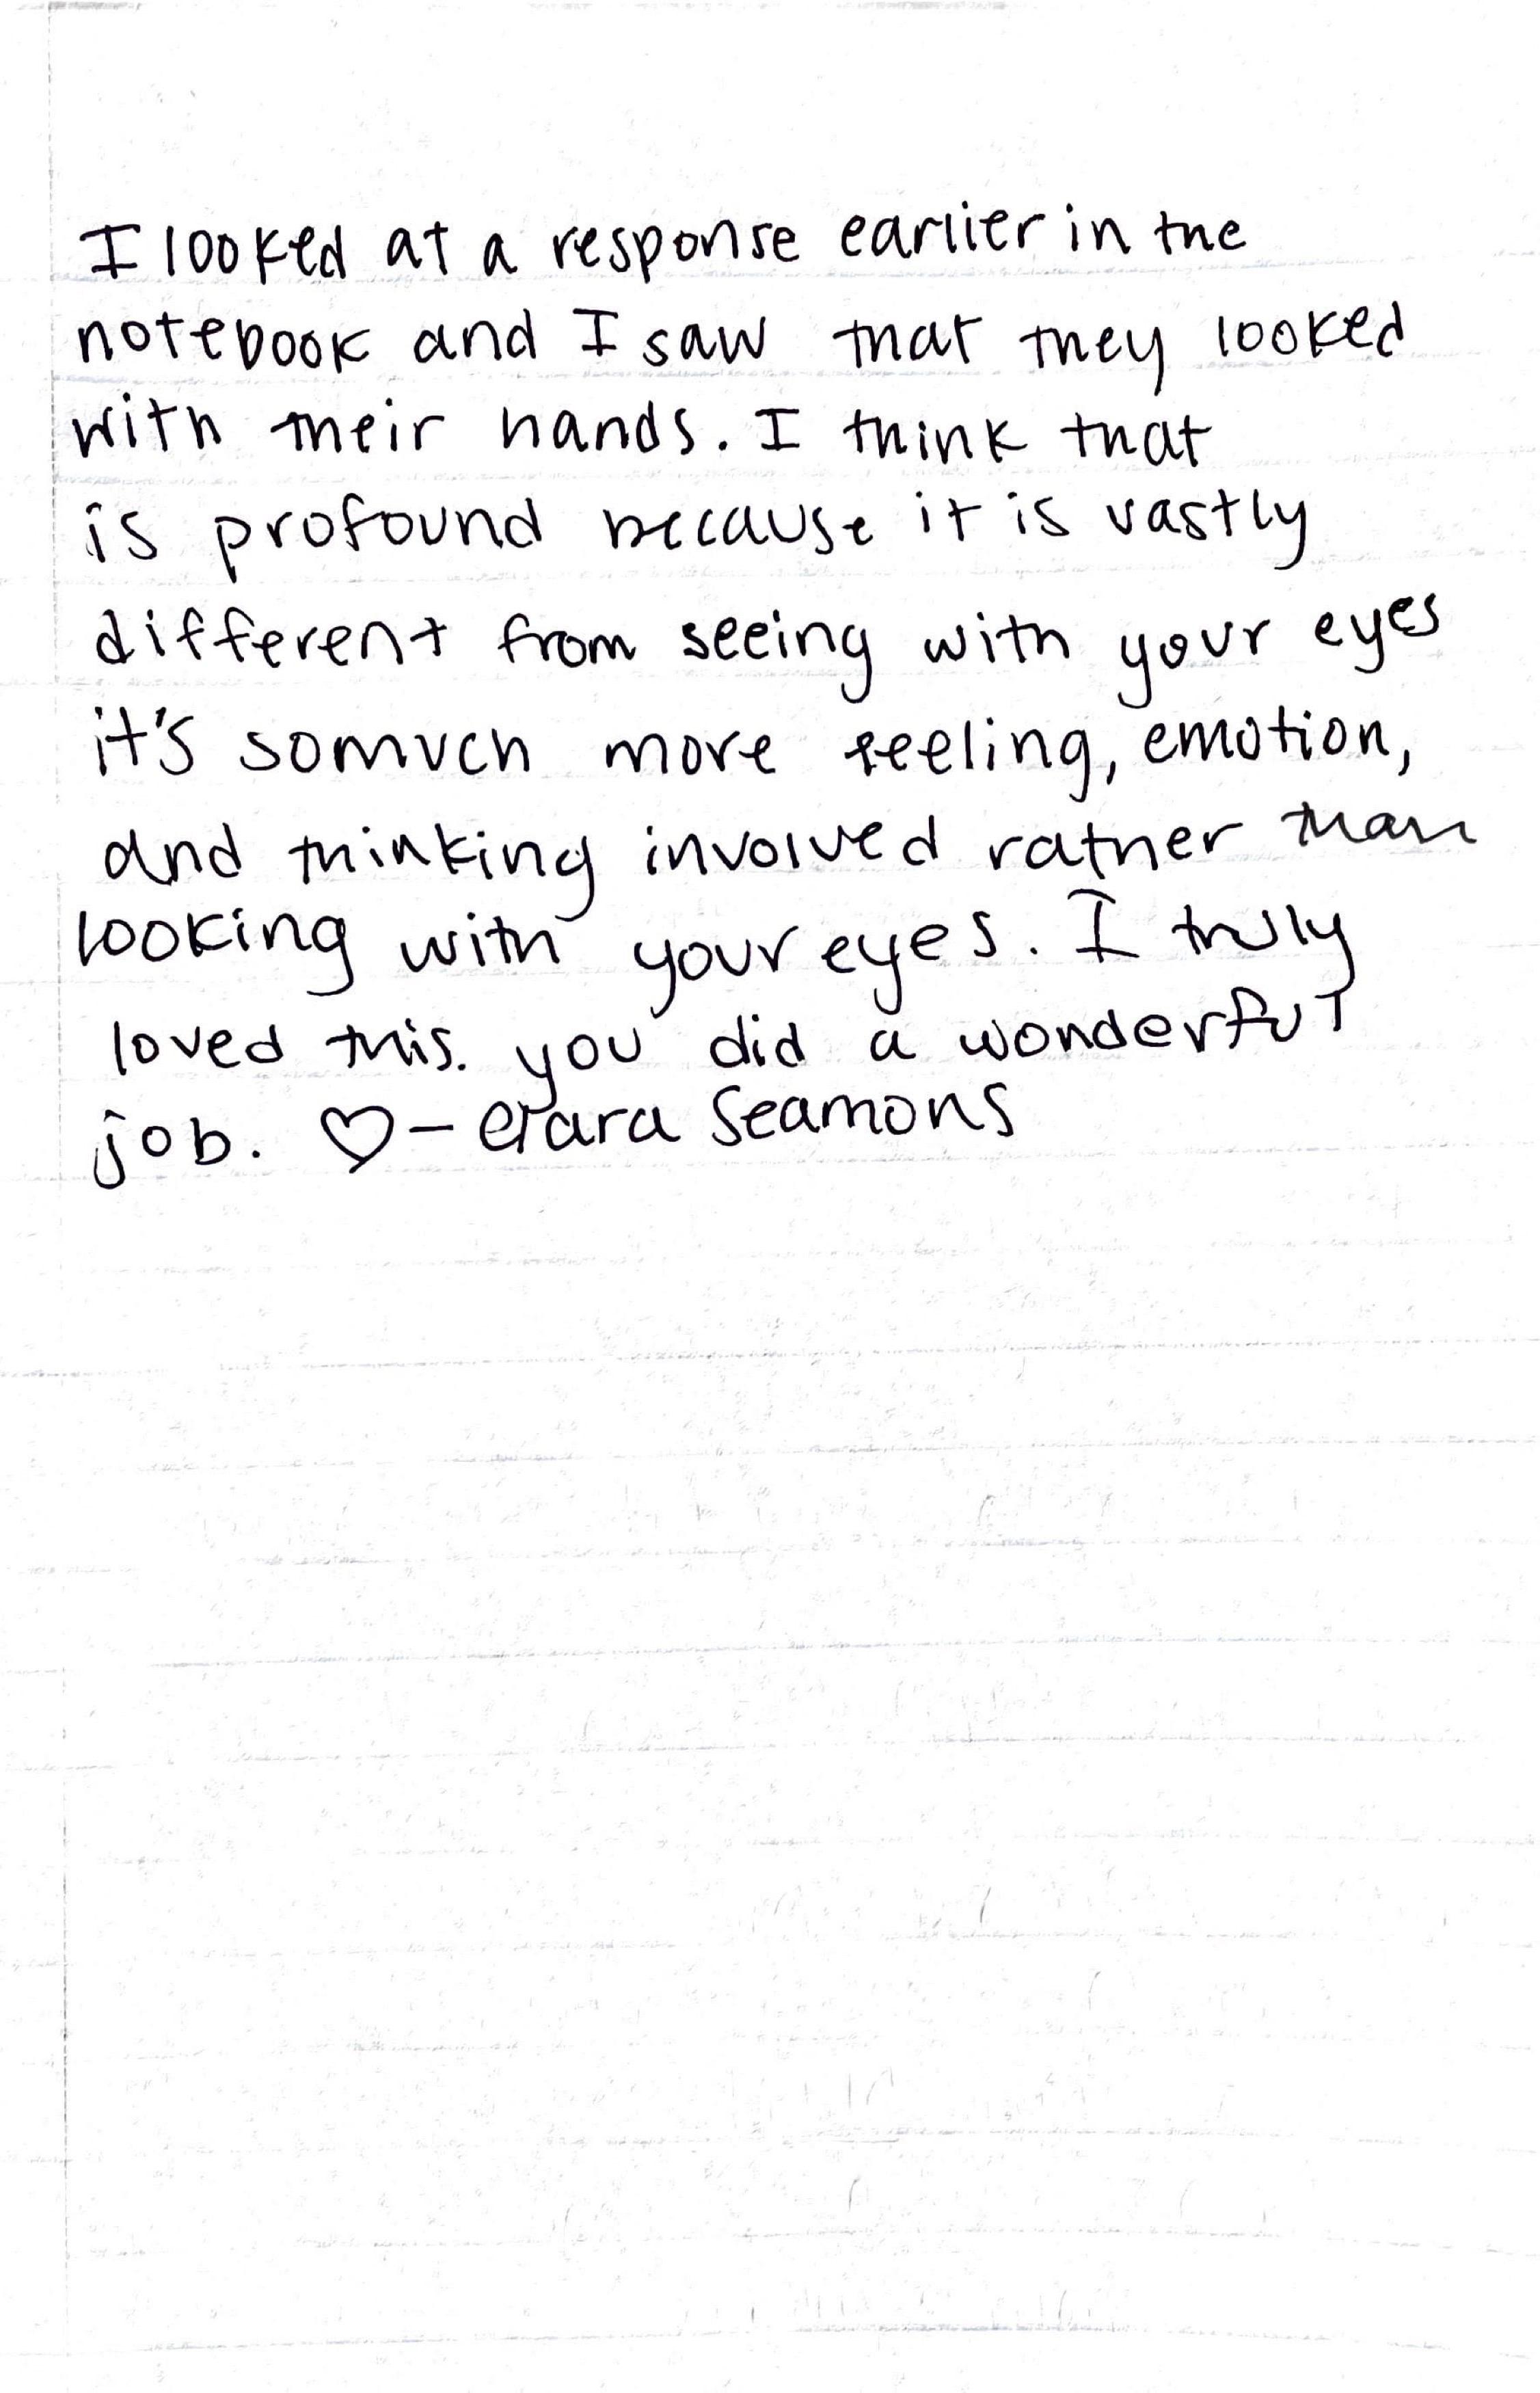 I looked at a response earlier in the
notebook and I saw that they looked
with their hands. I think that
is profound because it is vastly
different from seeing with your eyes
it's somuch more feeling, emotion,
and thinking involved rather than
looking with your eyes. I truly
loved this. you did a wonderful
job. ♡ – Ciara Seamons